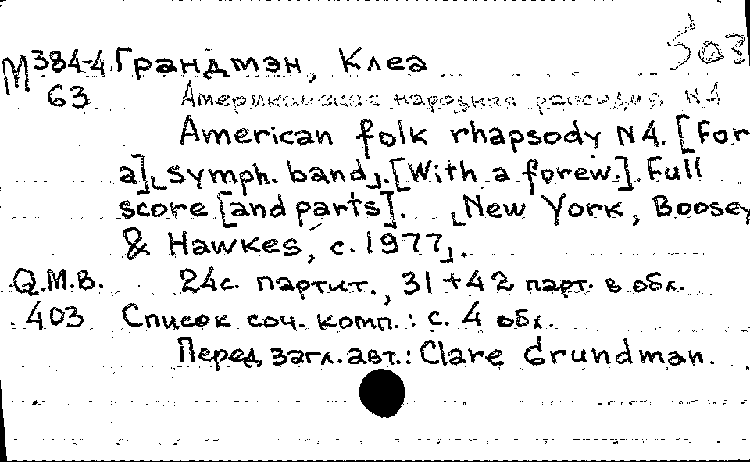 503
М 384-4 Грандмэн, Клеа
63 Американская народная рапсодия N4
American folk rhapsody N4. [For
a] symph. band. [With a forew.]. Full
score [and parts]. New York, Boosey
& Hawkes, c. 1977.
Q.M.B. 24с. партит., 31+42 парт. в обл.
403 Список соч. комп.: с. 4 обл.
Перед загл. авт.: Clare Grundman.